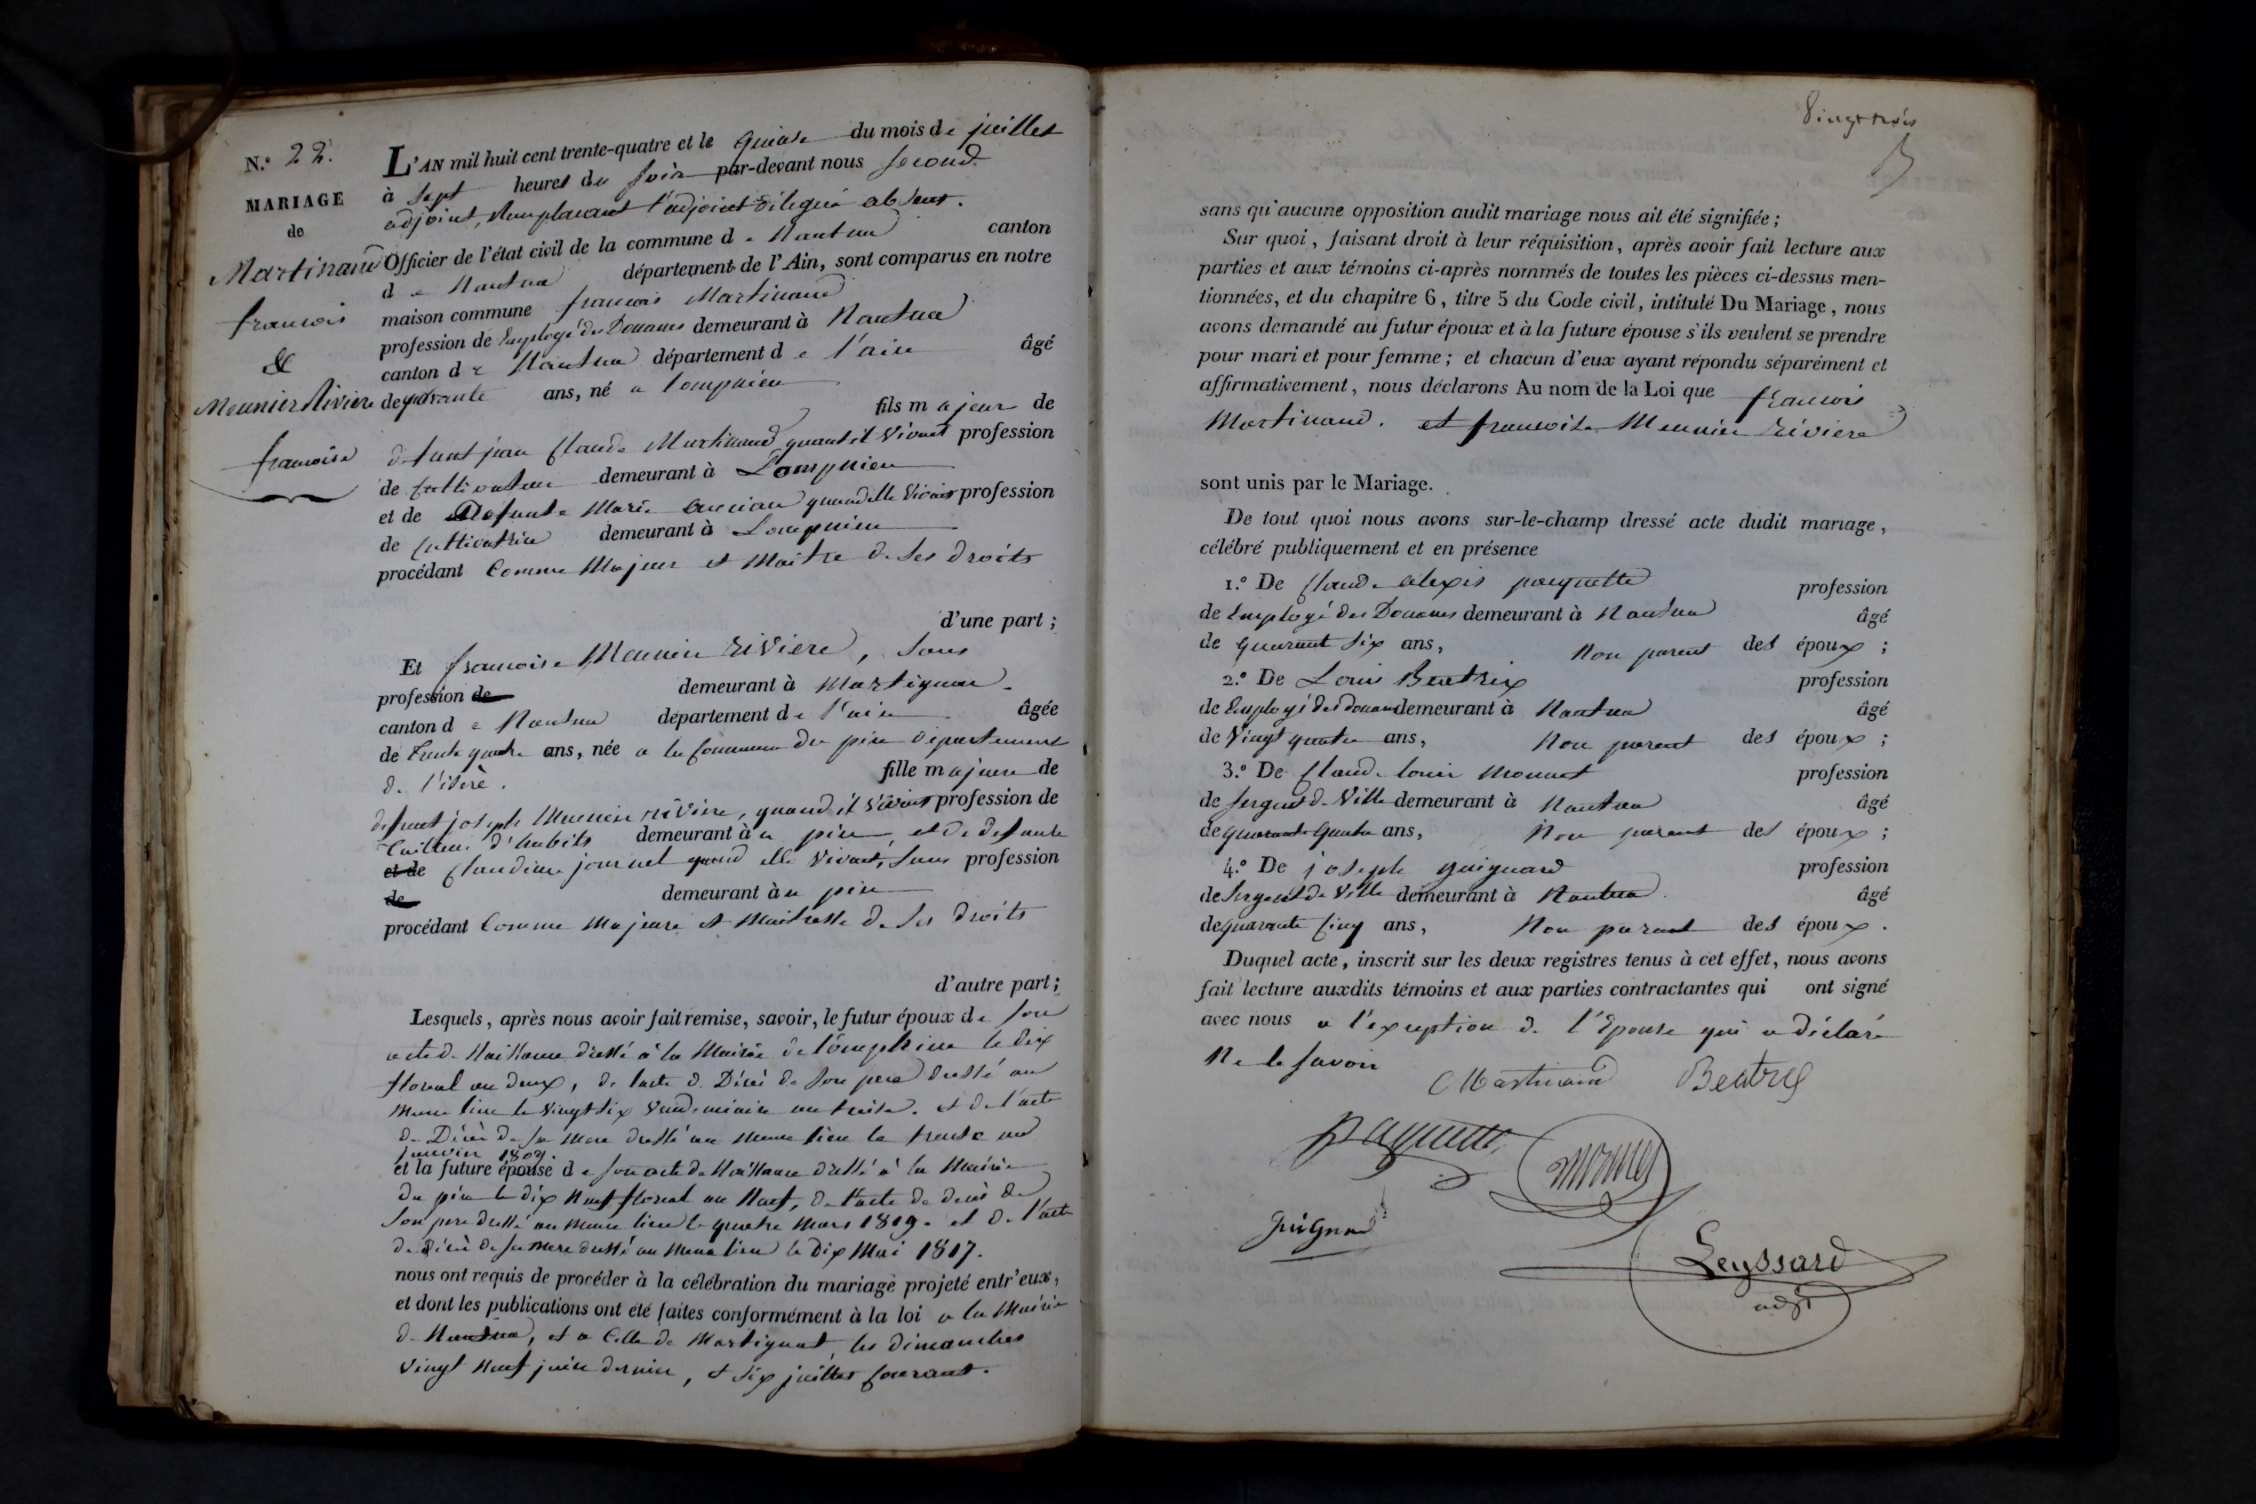 N.º 22.
MARIAGE
de
Martinand
francois
&
Meunier Riviere
francoise
L'AN mil huit cent trente-quatre et le quinze du mois de juillet
à sept heures du soir par-devant nous second
adjoint, remplacant l'adjoint délégué absent.
Officier de l'état civil de la commune de Nantua canton
de Nantua département de l'Ain, sont comparus en notre
maison commune francois Martinand
profession de Employé des Douanes demeurant à Nantua
canton de Nantua département de l'ain âgé
de quarante ans, né a Lompnieu
fils majeur de
defunt jean Claude Martinand quand il vivait profession
de Cultivateur demeurant à Lompnieu
et de Defunte Marie quand elle vivait profession
de Cultivatrice demeurant à Lompnieu
procédant Comme Majeur et Maître de ses droits
d'une part ;
Et francoise Meunier riviere, sans
profession de demeurant à Martignat
canton de Nantua département de l'ain âgée
de trente quatre ans, née a la Commune du pin département
de l'isère. fille majeure de
defunt joseph Meunier rivière, quand il vivait profession de
tailleur d'habits demeurant à u pin et de defunte
et de Claudine journel quand elle vivait, sans profession
de demeurant à u pin
procédant Comme Majeure et Maitresse de ses droits
d'autre part ;
Lesquels, après nous avoir fait remise, savoir, le futur époux de son
acte de Naissance dressé à la Mairie de Lompnieu le dix
floreal an deux, de l'acte de Décès de son pere dressé au
meme lieu le vingt six vendemiaire an treize. et de l'acte
de Décès de sa mere dressé au meme lieu le trente un
janvier 1809.
et la future épouse de son acte de Naissance dressé à la Mairie
du pin le dix neuf floreal an Neuf, de l'acte de décès de
son pere dressé au meme lieu le quatre Mars 1819. et de l'acte
de décès de sa mere dressé au meme lieu le dix Mai 1817.
nous ont requis de procéder à la célébration du mariage projeté entr'eux,
et dont les publications ont été faites conformément à la loi a la Mairie
de Nantua, et a Celle de Martignat, les dimanches
vingt neuf juin dernier, et six juillet Courant.
Vingt trois
sans qu'aucune opposition audit mariage nous ait été signifiée ;
Sur quoi, faisant droit à leur réquisition, après avoir fait lecture aux
parties et aux témoins ci-après nommés de toutes les pièces ci-dessus men-
tionnées, et du chapitre 6, titre 5 du Code civil, intitulé Du Mariage, nous
avons demandé au futur époux et à la future épouse s'ils veulent se prendre
pour mari et pour femme ; et chacun d'eux ayant répondu séparément et
affirmativement, nous déclarons Au nom de la Loi que francois
Martinand. et francoise Meunier riviere
sont unis par le Mariage.
De tout quoi nous avons sur-le-champ dressé acte dudit mariage,
célébré publiquement et en présence
1.º De Claude alexis paquette profession
de Employé des Douanes demeurant à Nantua âgé
de quarante six ans, Non parent des époux ;
2.º De Louis Beatrix profession
de Employé des douanes demeurant à Nantua âgé
de vingt quatre ans, Non parent des époux ;
3.º De Claude louis Monnet profession
de sergent de Ville demeurant à Nantua âgé
de quarante quatre ans, Non parent des époux ;
4.º De joseph guignard profession
de sergent de Ville demeurant à Nantua âgé
de quarante Cinq ans, Non parent des époux.
Duquel acte, inscrit sur les deux registres tenus à cet effet, nous avons
fait lecture auxdits témoins et aux parties contractantes qui ont signé
avec nous a l'exception de l'Epouse qui a déclaré
Ne le savoir
Martinand Beatrix
paquette Monnet
Guignard
Leyssard
adjt